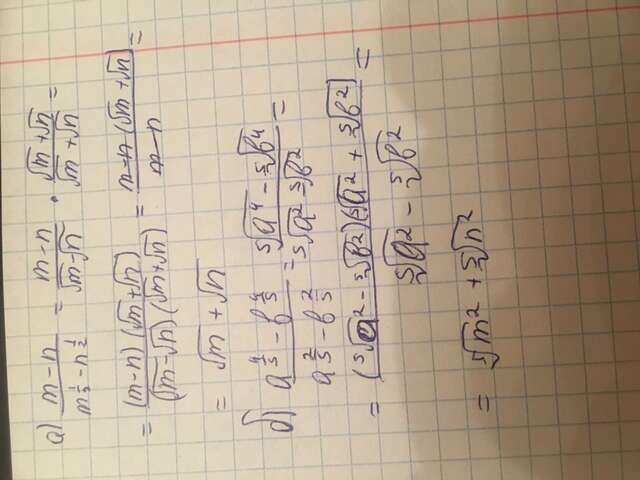 а) (m-n)/(m^{1/2}-n^{1/2}) = (m-n)/(√m-√n) · (√m+√n)/(√m+√n) =
= ((m-n)(√m+√n))/((√m-√n)(√m+√n)) = (m-n(√m+√n))/(m-n) =
= √m+√n
б) (a^{4/5}-b^{4/5})/(a^{2/5}-b^{2/5}) = (⁵√a⁴-⁵√b⁴)/(⁵√a² ⁵√b²) =
= ((⁵√a²-⁵√b²)(⁵√a²+⁵√b²))/(⁵√a²-⁵√b²) =
= ⁵√m²+⁵√n²